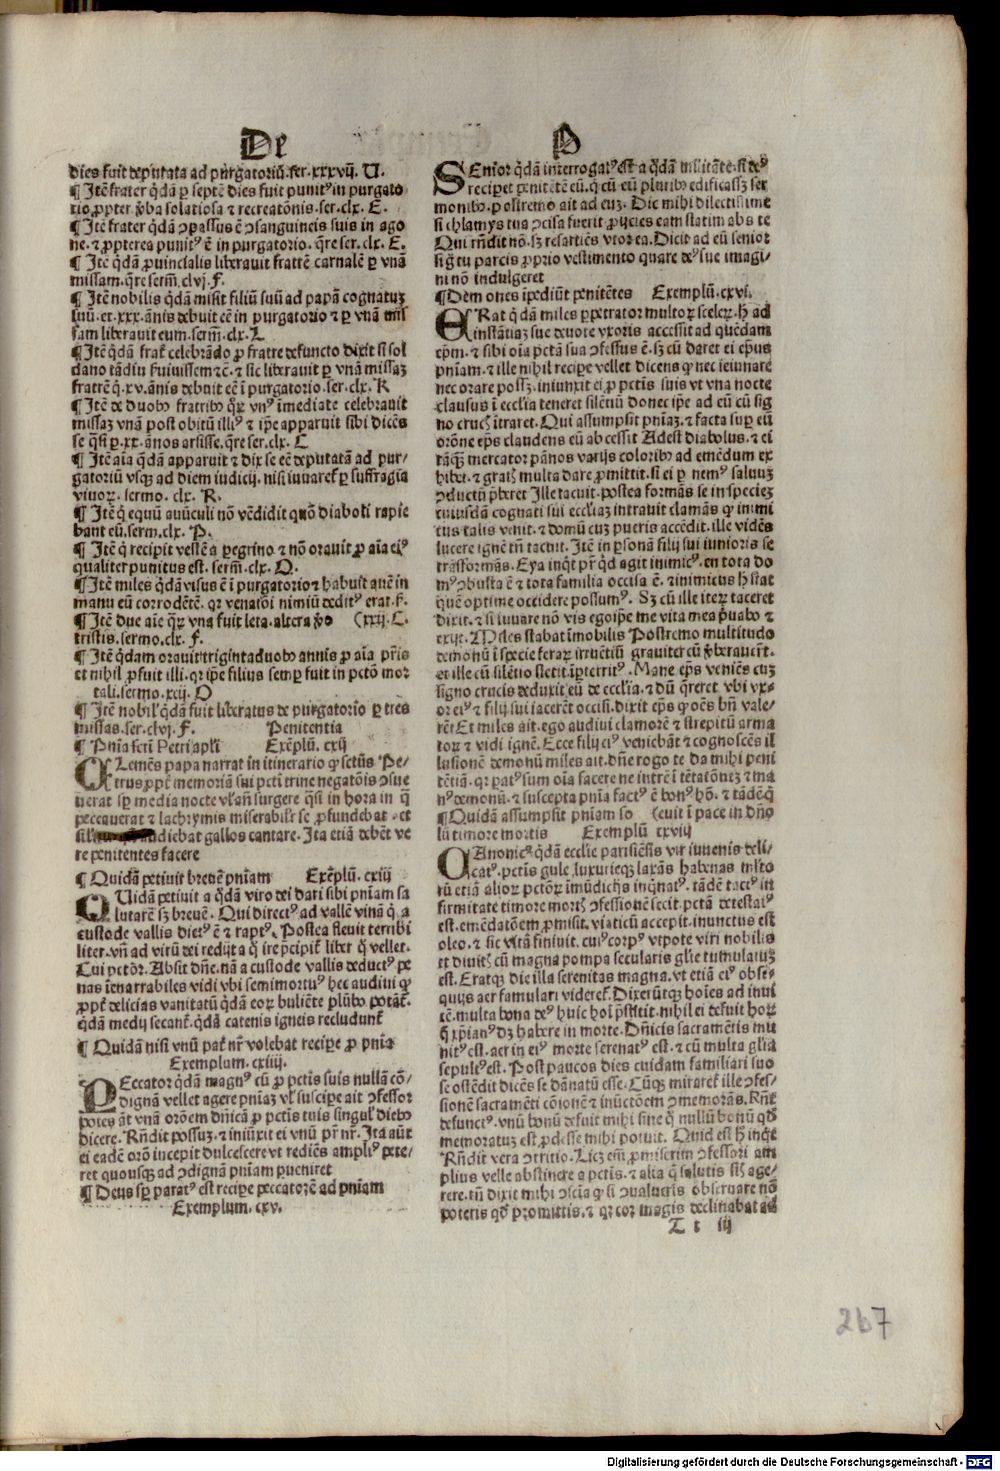 De P
dies fuit deputata ad purgatoriū.ser.xxxvij. U.
¶ Itē frater q̄dā p septē dies fuit punitꝰ in purgato
rio ꝓpter v̄ba solatiosa ⁊ recreatōnis.ser.clx. E.
¶ Itē frater q̄dā ↄpassus ē ↄsanguineis suis in ago
ne.⁊ ꝓpterea punitꝰ ē in purgatorio.q̄re ser.clx. E.
¶ Itē q̄dā ꝓuincialis liberauit fratrē carnalē ꝑ vnā
missam.q̄re serm̄.clvj.F.
¶ Itē nobilis q̄dā misit filiū suū ad papā cognatuꝫ
suū.et.xxx.ānis debuit eē in purgatorio ⁊ ꝑ vnā mis
sam liberauit eum.serm̄.clx.L
¶ Itē q̄dā frat̄ celebrādo ꝓ fratre defuncto dixit si sol
dano tādiu fuiuissem ⁊cē.⁊ sic liberauit ꝑ vnā missaꝫ
fratrē q̄.xv.ānis debuit eē ī purgatorio.ser.clx. K
¶ Itē de duobꝰ fratribꝰ q̄ꝝ vnꝰ īmediate celebrauit
missaꝫ vnā post obitū illiꝰ ⁊ ip̄e apparuit sibi dicēs
se q̄si ꝑ.xx.ānos arsisse.q̄re ser.clx. C
¶ Itē aīa q̄dā apparuit ⁊ dixit se eē deputatā ad pur/
gatoriū vsqꝫ ad diem iudicij.nisi iuuaret̄ ꝑ suffragia
viuoꝝ.sermo.clx. R.
¶ Itē q̄ equū auūculi nō vēdidit quō diaboli rapie
bant eū.serm.clx. P.
¶ Itē q̄ recipit vestē a ꝑegrino ⁊ nō orauit ꝓ aīa eiꝰ
qualiter punitus est.serm̄.clx. Q.
¶ Itē miles q̄dā visus ē ī purgatorio ⁊ habuit auē in
manu eū corrodētē.qꝛ venatōi nimiū deditꝰ erat.ẜ.
¶ Itē due aīe q̄ꝝ vna fuit leta.altera v̄o (xxij. C.
tristis.sermo.clx. F.
¶ Itē q̄dam orauit triginta duobꝰ annis ꝓ aīa pr̄is
et nihil ꝓfuit illi.qꝛ ip̄e filius semꝑ fuit in pctō mor
tali.sermo.xcij. O
¶ Itē nobil̓ q̄dā fuit liberatus de purgatorio ꝑ tres
missas.ser.clvj.F. Penitentia
¶ Pn̄ia scti Petri apl̄i Exēplū.cxij
CLemēs papa narrat in itinerario qꝙ sctūs Pe/
trus ꝓpt̄ memoriā sui pcti trine negatōis ↄsue
uerat sꝑ media nocte vl̓ an̄ surgere q̄si in hora in q̄
peccauerat ⁊ lachrymis miserabilr̄ se ꝓfundebat.et
audiebat gallos cantare.Ita etiā debēt ve
re penitentes facere
¶ Quidā petiuit breuē pn̄iam Exēplū.cxiij
QUidā petiuit a q̄dā viro dei dari sibi pn̄iam sa
lutarē sꝫ breuē.Qui directꝰ ad vallē vinā q̄ a
custode vallis dietꝰ ē ⁊ raptꝰ.Postea fleuit terribi
liter.vn̄ ad virū dei redijt a q̄ ire p̄cipit̄ libet q̄ vellet.
Cui pctōr.Absit dn̄e.nā a custode vallis deductꝰ pe
nas īenarrabiles vidi vbi semimortuꝰ hec audiui qꝙ
ꝓpt̄ delicias vanitatū q̄dā eoꝝ buliēte plūbo potāt̄.
q̄dā medij secant̄.q̄dā catenis igneis recludunt̄
¶ Quidā nisi vnū pat̄ nr̄ volebat recipe ꝓ pn̄ia
Exemplum.cxiiij.
PEccator q̄dā magnꝰ cū ꝓ pctīs suis nullā cō/
dignā vellet agere pn̄iaꝫ vl̓ suscipe ait ↄfessor
potes āt vnā orōem dn̄icā ꝓ pctīs tuis singul̓ diebꝰ
dicere.Rn̄dit possuꝫ.⁊ iniūxit ei vnū pr̄ nr̄.Ita aūt
ei eadē orō incepit dulcescere vt rediēs ampliꝰ pete/
ret quousqꝫ ad ↄdignā pn̄iam pueniret
¶ Deus sꝑ paratꝰ est recipe peccatorē ad pn̄iam
Exemplum.cxv.
SEnior q̄dā interrogatꝰ est a q̄dā militāte.si deꝰ
recipet penitētē eū.q̄ cū eū pluribꝰ edificassꝫ ser
monibꝰ.postremo ait ad euꝫ.Dic mihi dilectissime
si chlamys tua ↄcisa fuerit ꝓijcies eam statim abs te
Qui rn̄dit nō.sꝫ resartiēs vtor ea.Dicit ad eū senior
si g̊ tu parcis ꝓprio vestimento quare deꝰ sue imagi/
ni nō indulgeret
¶ Demones īpediūt penitētes Exemplū.cxvi.
ERat q̄dā miles ꝑpetrator multoꝝ sceleꝝ.hic ad
instātiaꝫ sue deuote vxoris accessit ad quēdam
ep̄m.⁊ sibi oīa pctā sua ↄfessus ē.sꝫ cū daret ei ep̄us
pn̄iam.⁊ ille nihil recipe vellet dicens qꝙ nec ieiunare
nec orare possꝫ.iniunxit ei ꝓ pctīs suis vt vna nocte
clausus ī ecclīa teneret silētiū donec ip̄e ad eū cū sig
no crucꝭ ītraret.Qui assumpsit pn̄iaꝫ.⁊ facta suꝑ eū
orōne ep̄s claudens eū abcessit Adest diabolus.⁊ ei
tāq̄ꝫ mercator pānos varijs coloribꝰ ad emēdum ex
hibet.⁊ gratꝭ multa dare ꝓmittit.si ei ꝑ nemꝰ saluuꝫ
ↄductū p̄beret Ille tacuit.postea formās se in specieꝫ
cuiusdā cognati sui ecclīaꝫ intrauit clamās qꝙ inimi
cus talis venit.⁊ domū cuꝫ pueris accēdit.ille vidēs
lucere ignē tn̄ tacuit.Itē in ꝑsonā filij sui iunioris se
trāsformās.Eya inqͥt pr̄ q̄d agit inimicꝰ.en tota do
mꝰ ↄbusta ē ⁊ tota familia occisa ē.⁊ inimicus hic stat
quē optime occidere possumꝰ.Sꝫ cū ille iteꝝ taceret
dixit.⁊ si iuuare nō vis egoip̄e me vita mea p̄uabo ⁊
exijt.Miles stabat īmobilis Postremo multitudo
demonū ī specie feraꝝ irruētiū grauiter cū v̄berauer̄t.
et ille cū silētio stetit īperritꝰ.Mane ep̄s veniēs cuꝫ
signo crucis deduxit eū de ecclīa.⁊ dū q̄reret vbi vx/
or eiꝰ ⁊ filij sui iacerēt occisi.dixit ep̄s qꝙ oēs bn̄ vale/
rēt Et miles ait.ego audiui clamorē ⁊ strepitū arma
toꝝ ⁊ vidi ignē.Ecce filij eiꝰ veniebāt ⁊ cognoscēs il
lusionē demonū miles ait.dn̄e rogo te da mihi peni
tētiā.qꝛ patꝰ sum oīa facere ne intrē ī tētatōneꝫ ⁊ ma
nꝰ demonū.⁊ suscepta pn̄ia factꝰ ē bonꝰ hō.⁊ tādē q̄
¶ Quidā assumpsit pniam so (euit ī pace in dn̄o
lū timore mortis Exemplū cxvij
CAnonicꝰ q̄dā ecclie parisiēsis vir iuuenis deli/
catꝰ.pctīs gule luxurieqꝫ laxās habenas mlto
rū etiā alioꝝ pctōꝝ īmūdicijs inq̄natꝰ.tādē tactꝰ in
firmitate timore mortꝭ ↄfessionē fecit.pctā detestatꝰ
est.emēdatōem ꝓmisit.viaticū accepit.inunctus est
oleo.⁊ sic vitā finiuit.cuiꝰ corpꝰ vtpote viri nobilis
et diuitꝭ cū magna pompa secularis glīe tumulatuꝫ
est.Eratqꝫ die illa serenitas magna.vt etiā eiꝰ obse/
quijs aer famulari videret̄.Dixerūtqꝫ hoīes ad inui
cē.multa bona deꝰ huic hoī p̄stitit.nihil ei defuit hoꝝ
q̄ xp̄ianꝰ dꝫ habere in morte.Dn̄icis sacramētis mu
nitꝰ est.aer in eiꝰ morte serenatꝰ est.⁊ cū multa glīa
sepultꝰ est.Post paucos dies cuidam familiari suo
se ostēdit dicēs se dānatū esse.Cūqꝫ miraret̄ ille ↄfes/
sionē sacramēti cōionē ⁊ inūctōem ↄmemorās.Rn̄t̄
defunctꝰ.vnū bonū defuit mihi sine q̄ nullū bonū q̄d
memoratuꝫ est ꝓdesse mihi potuit.Quid est hic inqͥt
Rn̄dit vera ↄtritio.Licꝫ em̄ ꝓmiserim ↄfessori am
plius velle abstinere a pctīs.⁊ alia q̄ salutis sīt age/
rere.tn̄ dixit mihi ↄscīa qꝙ si ↄualueris obseruare nō
poteris qd̄ ꝓmittis.⁊ qꝛ cor magis declinabat ad
T t iij
267
Digitalisierung gefördert durch die Deutsche Forschungsgemeinschaft - DFG